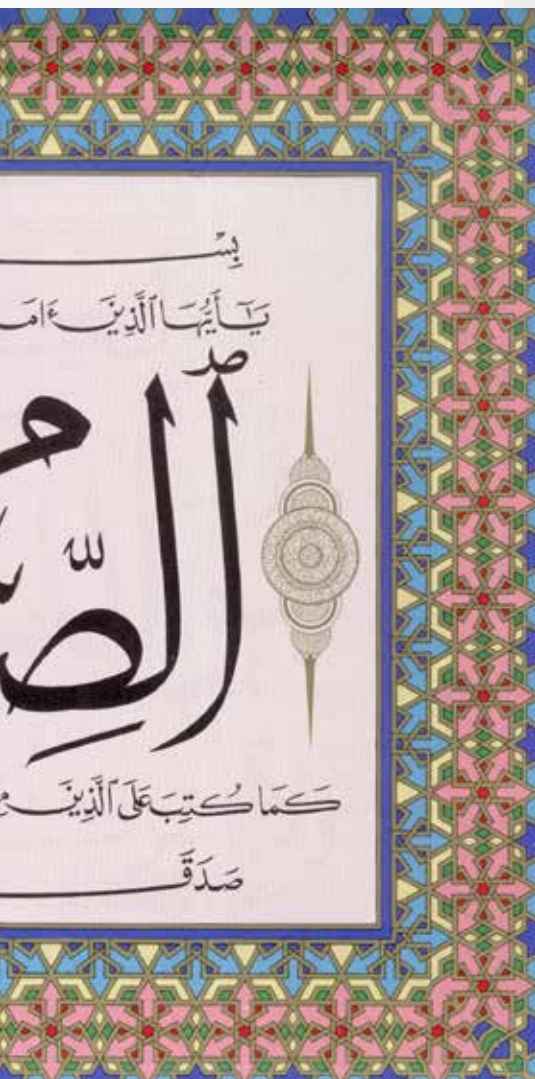 بِسْـ
يَـٰٓأَيُّهَا ٱلَّذِينَ ءَامَـ
ٱلصِّـ
كَمَا كُتِبَ عَلَى ٱلَّذِينَ
صَدَقَ